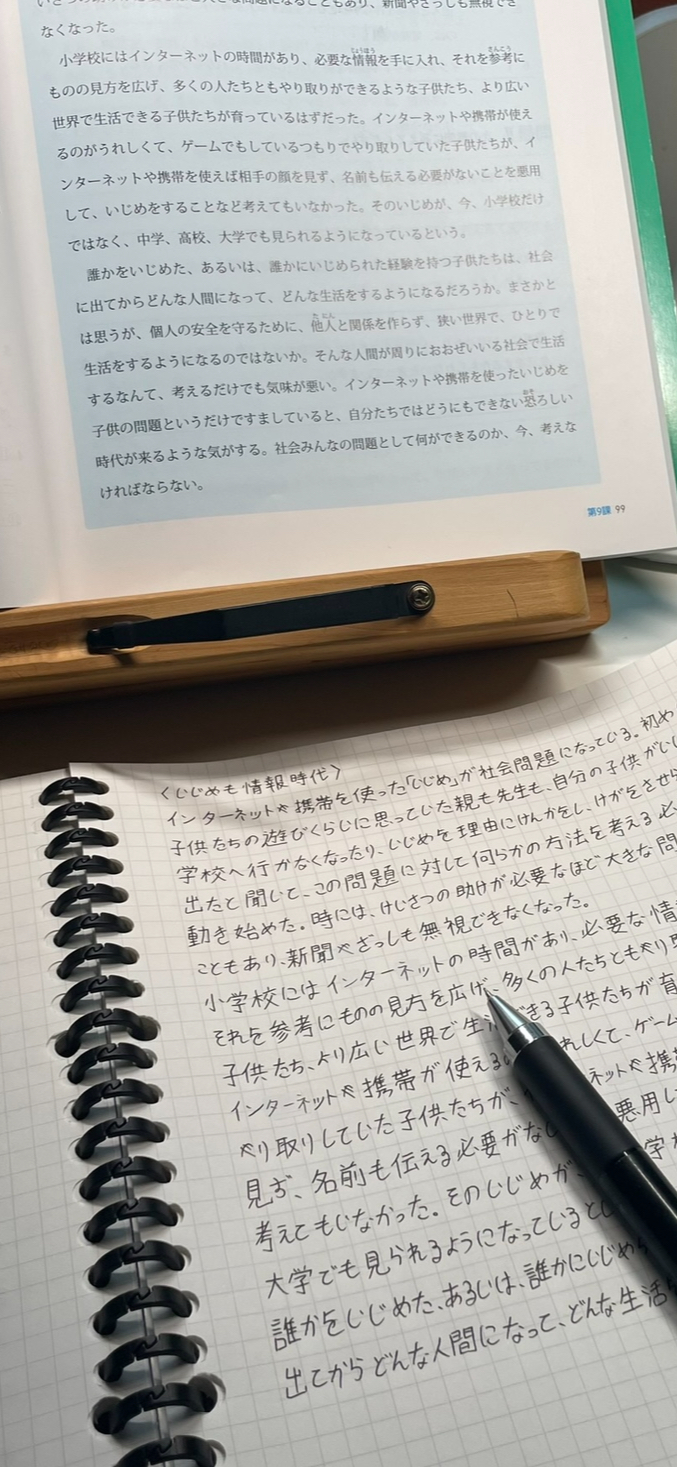 なくなった。
小学校にはインターネットの時間があり、必要な情報を手に入れ、それを参考に
ものの見方を広げ、多くの人たちともやり取りができるような子供たち、より広い
世界で生活できる子供たちが育っているはずだった。インターネットや携帯が使え
るのがうれしくて、ゲームでもしているつもりでやり取りしていた子供たちが、イ
ンターネットや携帯を使えば相手の顔を見ず、名前も伝える必要がないことを悪用
して、いじめをすることなど考えてもいなかった。そのいじめが、今、小学校だけ
ではなく、中学、高校、大学でも見られるようになっているという。
誰かをいじめた、あるいは、誰かにいじめられた経験を持つ子供たちは、社会
に出てからどんな人間になって、どんな生活をするようになるだろうか。まさかと
は思うが、個人の安全を守るために、他人と関係を作らず、狭い世界で、ひとりで
生活をするようになるのではないか。そんな人間が周りにおおぜいいる社会で生活
するなんて、考えるだけでも気味が悪い。インターネットや携帯を使ったいじめを
子供の問題というだけですましていると、自分たちではどうにもできない恐ろしい
時代が来るような気がする。社会みんなの問題として何ができるのか、今、考えな
ければならない。
第9課 99
〈いじめも情報時代〉
インターネットや携帯を使った「いじめ」が社会問題になっている。初め
子供たちの遊びくらいに思っていた親も先生も、自分の子供がいじ
学校へ行かなくなったり、いじめを理由にけんかをし、けがをさせら
出たと聞いて、この問題に対して何らかの方法を考える必
動き始めた。時には、けいさつの助けが必要なほど大きな問
こともあり、新聞やざっしも無視できなくなった。
小学校にはインターネットの時間があり、必要な情
それを参考にものの見方を広げ、多くの人たちともやり取
子供たち、より広い世界で生 できる子供たちが育
インターネットや携帯が使える れしくて、ゲーム
やり取りしていた子供たちが、 ネットや携
見ず、名前も伝える必要がな 悪用し
考えてもいなかった。そのいじめが、 学
大学でも見られるようになっていると
誰かをいじめた、あるいは、誰かにいじめら
出てからどんな人間になって、どんな生活